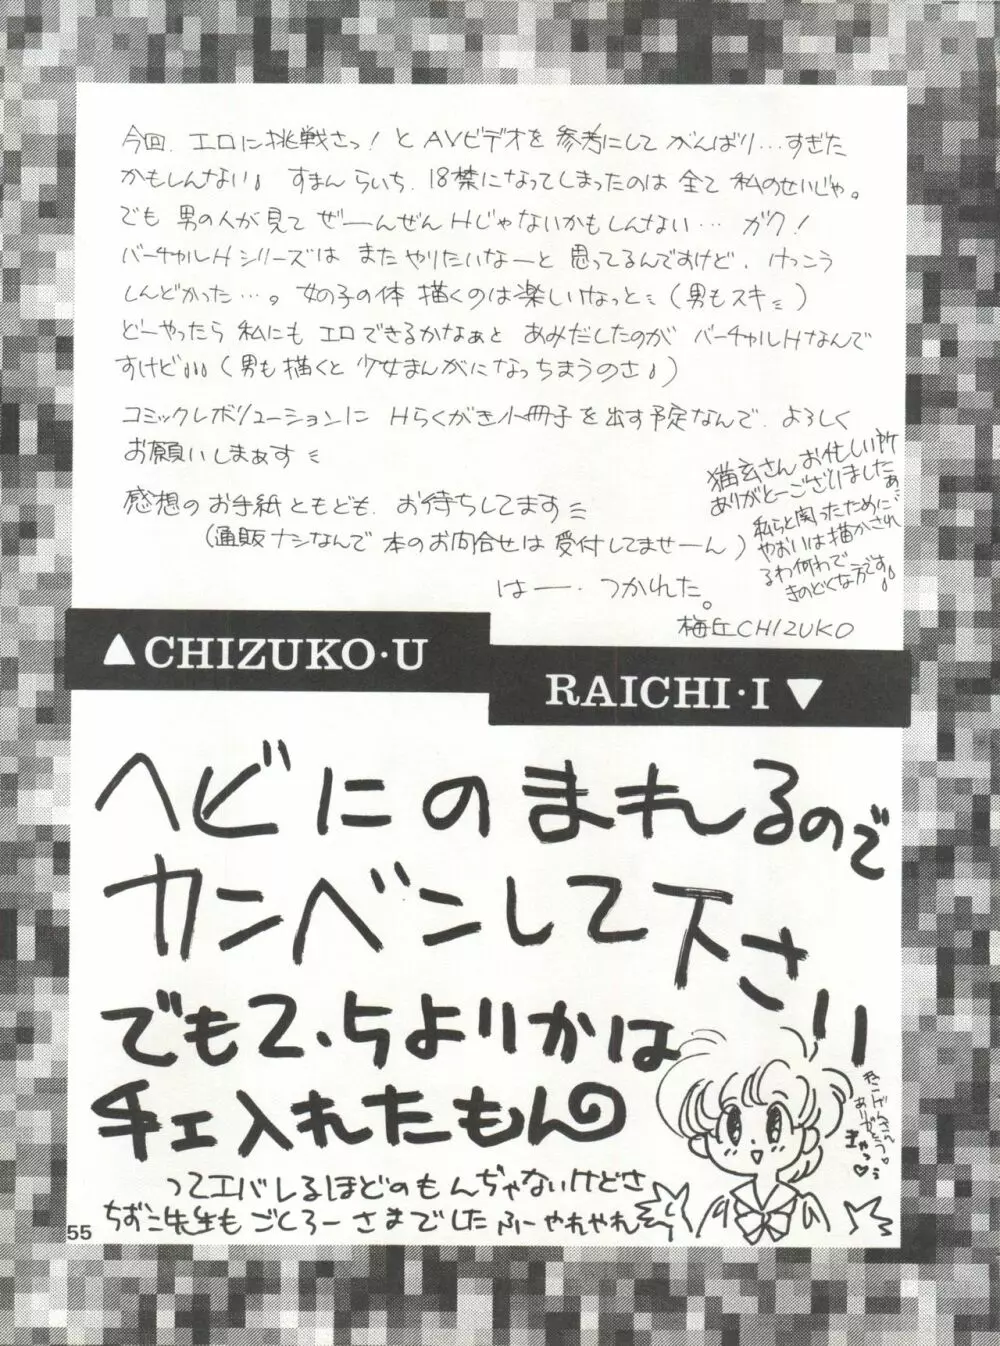 今回、エロに挑戦さっ！とAVビデオを参考にしてがんばり…すぎた
かもしんない♪ すまんらいち、18禁になってしまったのは全て私のせいじゃ。
でも男の人が見てぜーんぜんHじゃないかもしんない… ガク！
バーチャルHシリーズはまたやりたいなーと思ってるんですけど、けっこう
しんどかった…。女の子の体描くのは楽しいなっと （男もスキ）
どーやったら私にもエロできるかなぁとあみだしたのがバーチャルHなんで
すけど♪♪♪（男も描くと少女まんがになっちまうのさ♪）
コミックレボリューションにHらくがき小冊子を出す予定なんで、よろしく
お願いしまぁす
感想のお手紙ともども、お待ちしてます
（通販ナシなんで本のお問合せは受付してませーん）
はー・つかれた。
猫玄さんお忙しい所
ありがとーございましたぁ…
私らと関ったために
やおいは描かされ
るわ何わで
きのどくな方です♪
梅丘CHIZUKO
▲CHIZUKO·U
RAICHI·I▼
ヘビにのまれるので
カンベンして下さい
でも2.5よりかは
チェ入れたもん
ってエバレるほどのもんぢゃないけどさ
ちずこ先生もごくろーさまでしたふーやれやれ
ありがとう♡
きゃっ♡
55